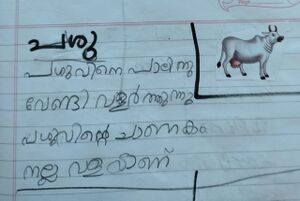 പശു
പശുവിനെ പാലിനു
വേണ്ടി വളർത്തുന്നു
പശുവിന്റെ ചാണകം
നല്ല വളമാണ്